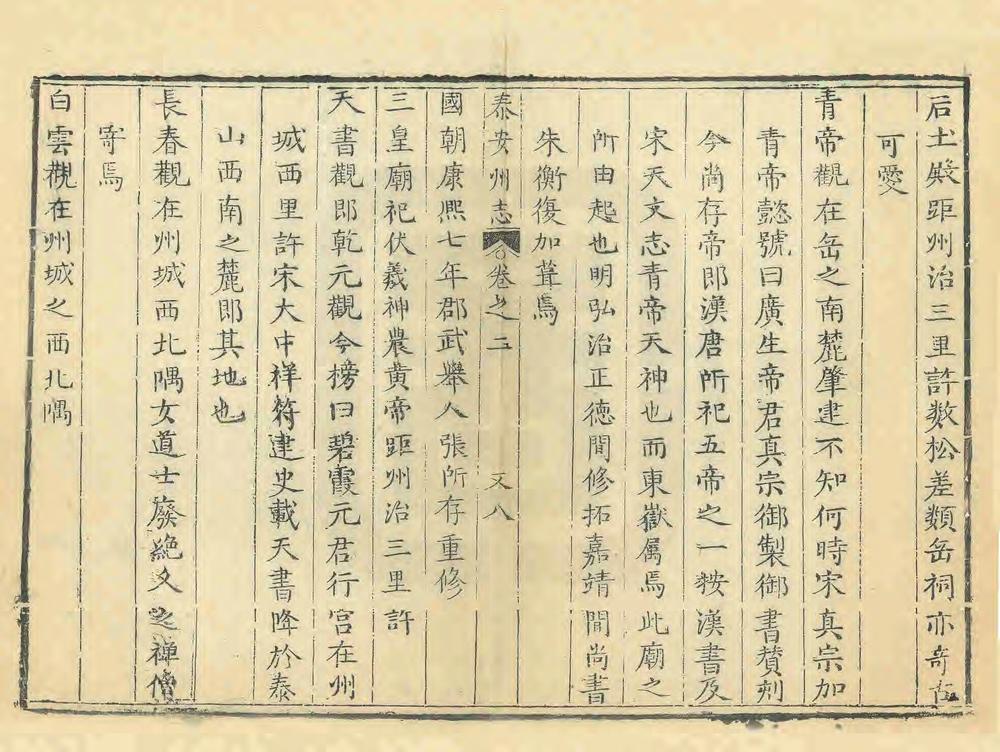 后土殿距州治三里許数松差類岳祠亦竒古
可愛
青帝觀在岳之南麓肇建不知何時宋真宗加
青帝懿號曰廣生帝君真宗御製御書賛刻
今尚存帝即漢唐所祀五帝之一按漢書及
宋天文志青帝天神也而東嶽属焉此廟之
所由起也明弘治正徳間修拓嘉靖間尚書
朱衡復加葺焉
泰安州志 卷之二 又八
國朝康熙七年郡武舉人張所存重修
三皇廟祀伏羲神農黄帝距州治三里許
天書觀即乾元觀今榜曰碧霞元君行宫在州
城西里許宋大中祥符建史載天書降於泰
山西南之麓即其地也
長春觀在州城西北隅女道士廢絶久之禅僧
寄焉
白雲觀在州城之西北隅